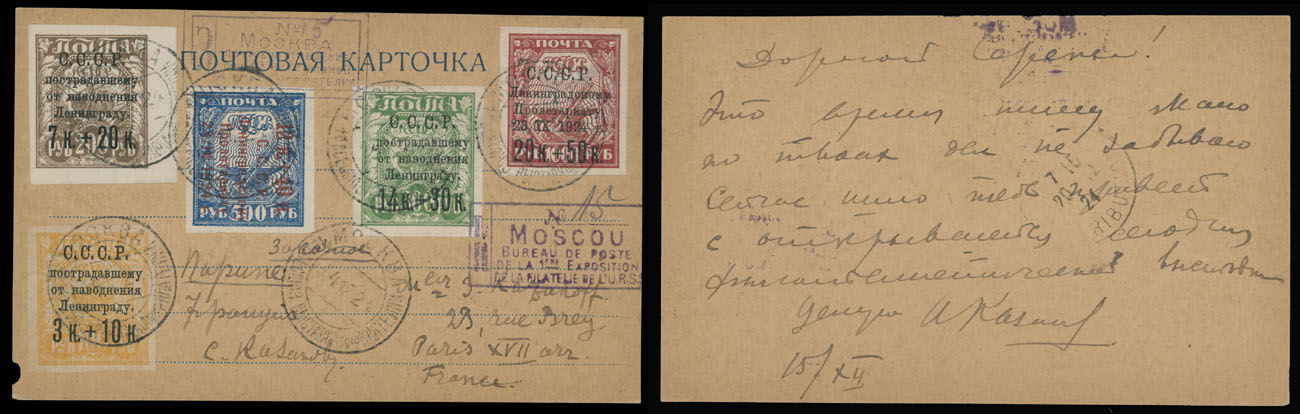 № 15
МОСКВА
ПОЧТОВАЯ КАРТОЧКА
С.С.С.Р.
пострадавшему
от наводнения
Ленинграду.
7 к. + 20 к.
ПОЧТА
РУБ 500 РУБ
С.С.С.Р.
пострадавшему
от наводнения
Ленинграду.
14 к. + 30 к.
ПОЧТА
С.С.С.Р.
Ленинградскому
Пролетариату
23 IX 1924
20 к. + 50 к.
С.С.С.Р.
пострадавшему
от наводнения
Ленинграду.
3 к. + 10 к.
МОСКВА
Заказное
Париж
Франция
№ 15
MOSCOU
BUREAU DE POSTE
DE LA 1ÈRE EXPOSITION
DE LA PHILATELIE DE L'U.R.S.S.
23, rue Brey
Paris XVII arr
France
Дорогой Сережа!
Это время пишу мало
но твоих дел не забываю
Сейчас шлю тебе привет
с открывшейся сегодня
филателистической выставки
Целую
15/XII
7 15
20 12
24